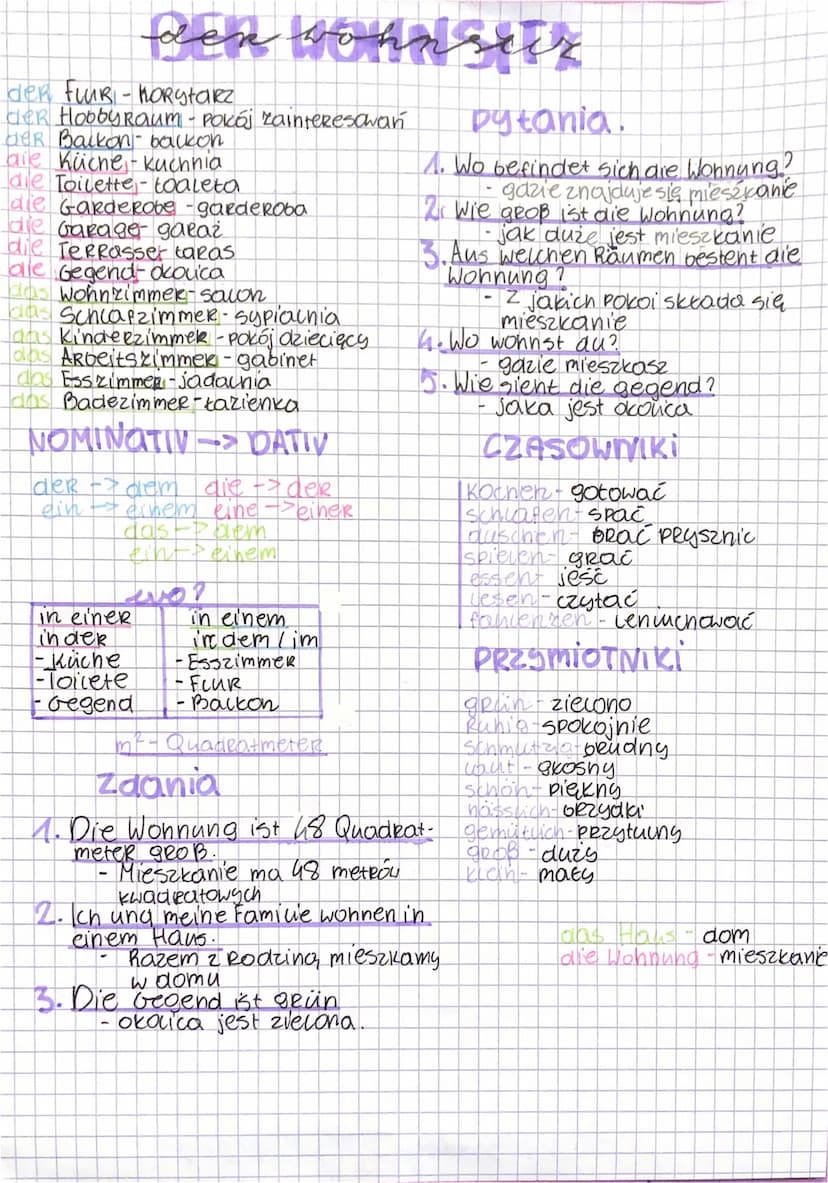 DER WOHNSITZ
der wohnsitz
der Flur - korytarz
der Hobbyraum - pokój zainteresowań
der Balkon - balkon
die Küche - kuchnia
die Toilette - toaleta
die Garderobe - garderoba
die Garage - garaż
die Terrasse - taras
die Gegend - okolica
das Wohnzimmer - salon
das Schlafzimmer - sypialnia
das Kinderzimmer - pokój dziecięcy
das Arbeitszimmer - gabinet
das Esszimmer - jadalnia
das Badezimmer - łazienka
NOMINATIV -> DATIV
der -> dem die -> der
ein -> einem eine -> einer
das -> dem
ein -> einem
wo?
in einer
in der
- Küche
- Toilete
- Gegend
in einem
in dem / im
- Esszimmer
- Flur
- Balkon
m² - Quadratmeter
Zdania
1. Die Wohnung ist 48 Quadrat-
meter groß.
- Mieszkanie ma 48 metrów
kwadratowych
2. Ich und meine Familie wohnen in
einem Haus.
- Razem z rodziną mieszkamy
w domu
3. Die Gegend ist grün
- okolica jest zielona.
pytania.
1. Wo befindet sich die Wohnung?
- gdzie znajduje się mieszkanie
2. Wie groß ist die Wohnung?
- jak duże jest mieszkanie
3. Aus welchen Räumen besteht die
Wohnung?
- z jakich pokoi składa się
mieszkanie
4. Wo wohnst du?
- gdzie mieszkasz
5. Wie sieht die gegend?
- jaka jest okolica
CZASOWNIKI
kochen - gotować
schlafen - spać
duschen - brać prysznic
spielen - grać
essen - jeść
lesen - czytać
faulenzen - leniuchować
PRZYMIOTNIKI
grün - zielono
ruhig - spokojnie
schmutzig - brudny
laut - głośny
schön - piękny
hässlich - brzydki
gemütlich - przytulny
groß - duży
klein - mały
das Haus - dom
die Wohnung - mieszkanie